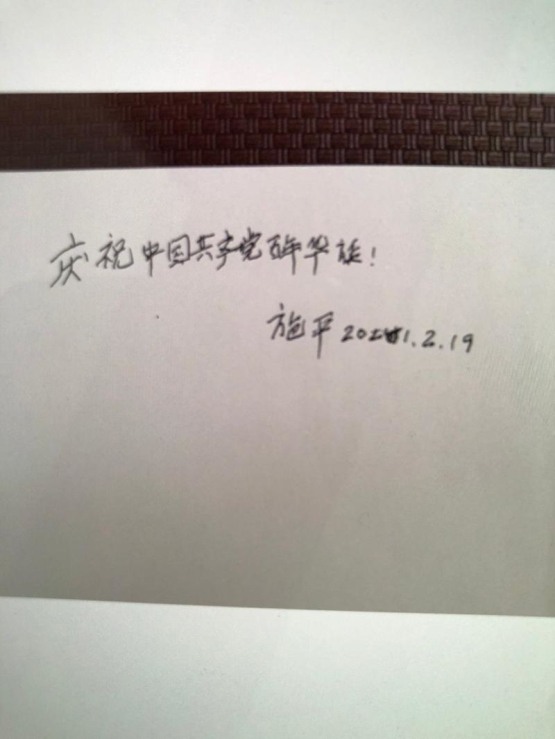 庆祝中国共产党百年华诞！
施平 2021.2.19